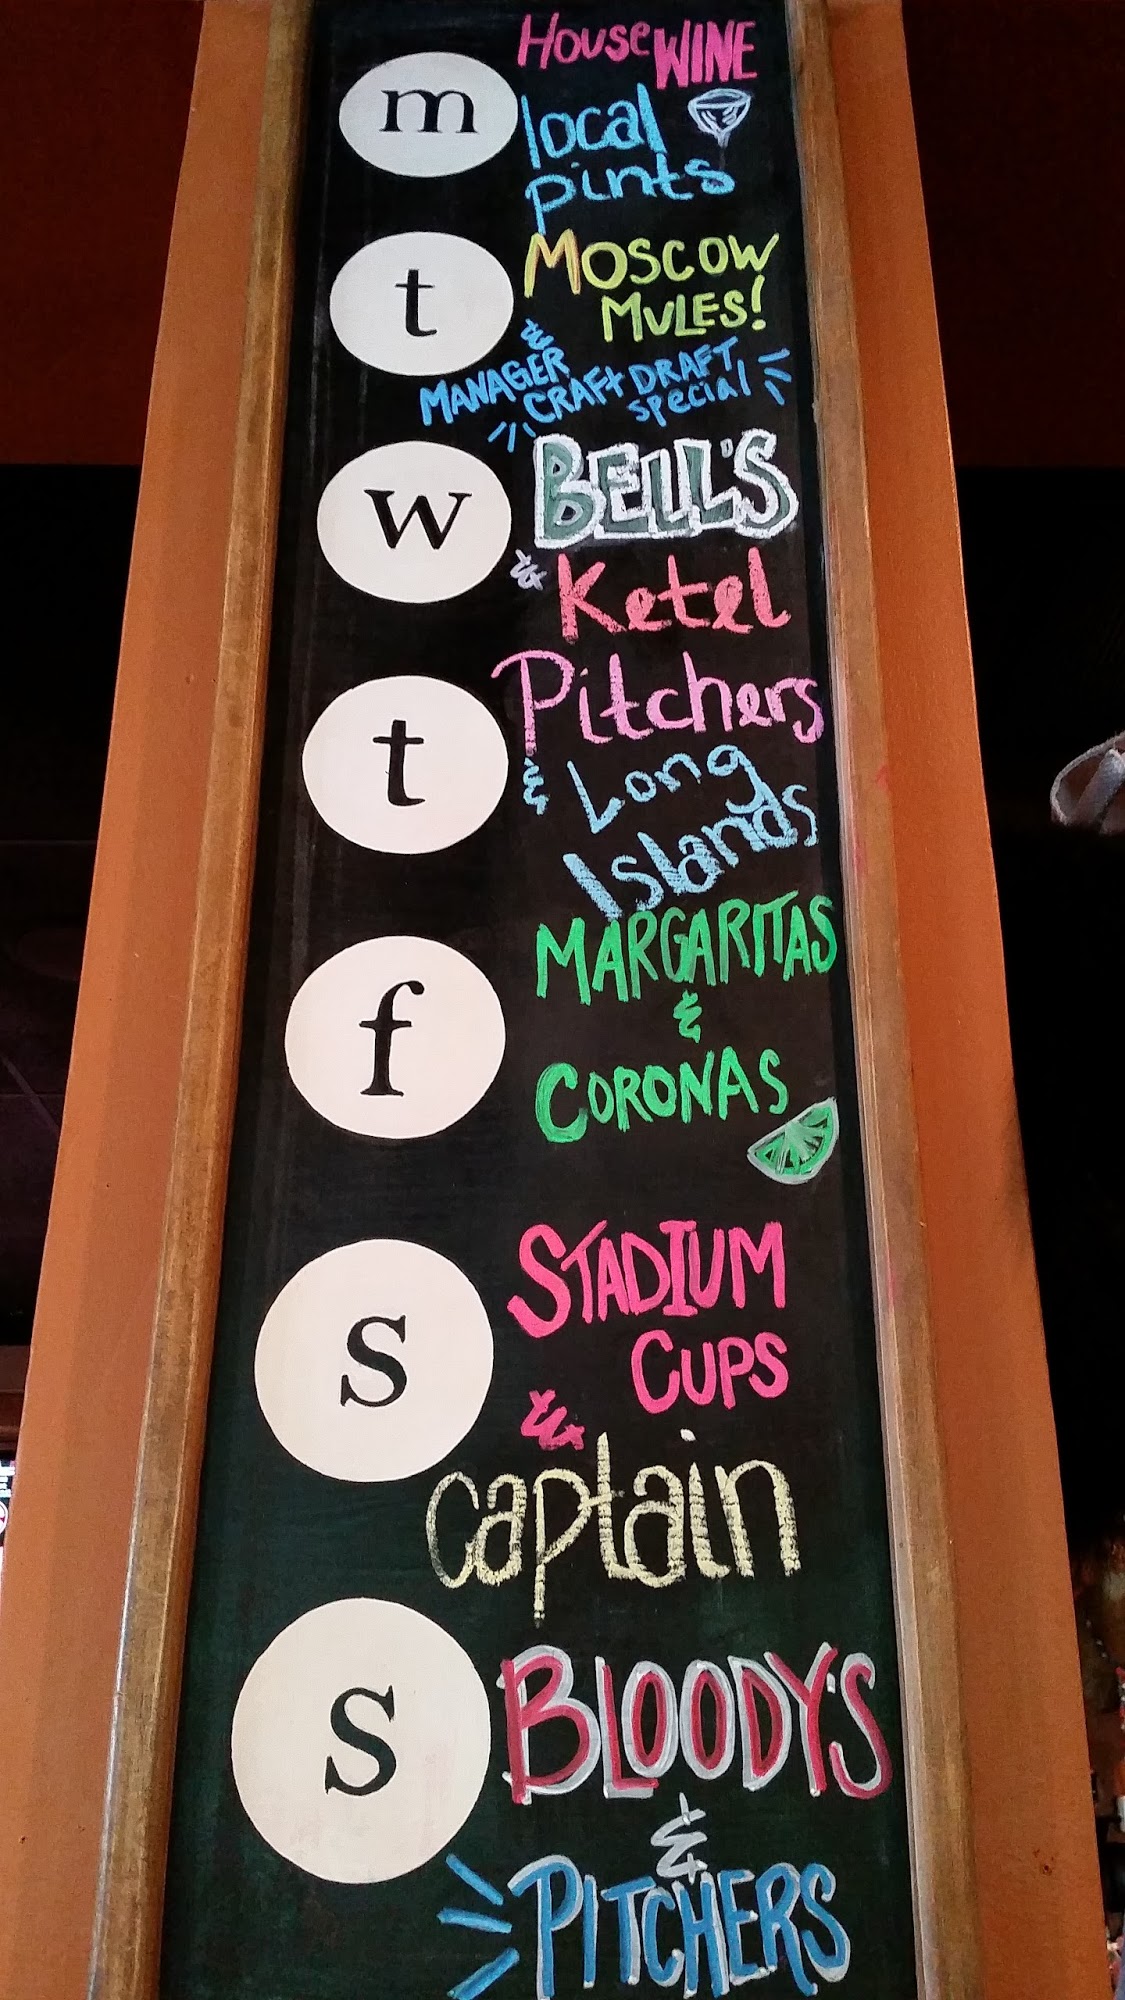 m
House WINE
local
pints
t
MOSCOW
MULES!
&
MANAGER
CRAFT DRAFT
special
w
BELL'S
& Ketel
t
Pitchers
& Long
Islands
f
MARGARITAS
&
CORONAS
s
STADIUM
CUPS
&
captain
s
BLOODY'S
&
PITCHERS